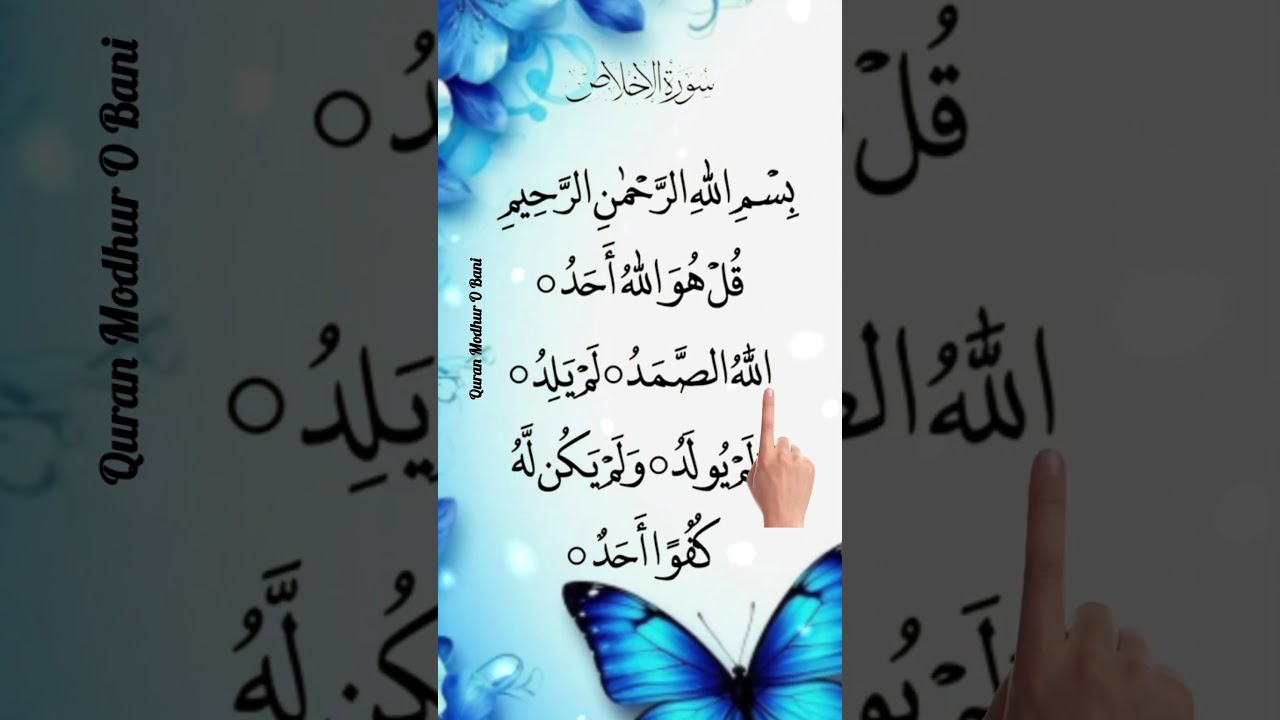 سُورَةُ الإِخْلَاصِ
بِسْمِ اللّٰهِ الرَّحْمٰنِ الرَّحِيمِ
قُلْ هُوَ اللّٰهُ أَحَدُ ○
اللّٰهُ الصَّمَدُ ○ لَمْ يَلِدُ ○
لَمْ يُولَدُ ○ وَلَمْ يَكُن لَّهُ
كُفُوًا أَحَدٌ ○
Quran Modhur O Bani
Quran Modhur O Bani